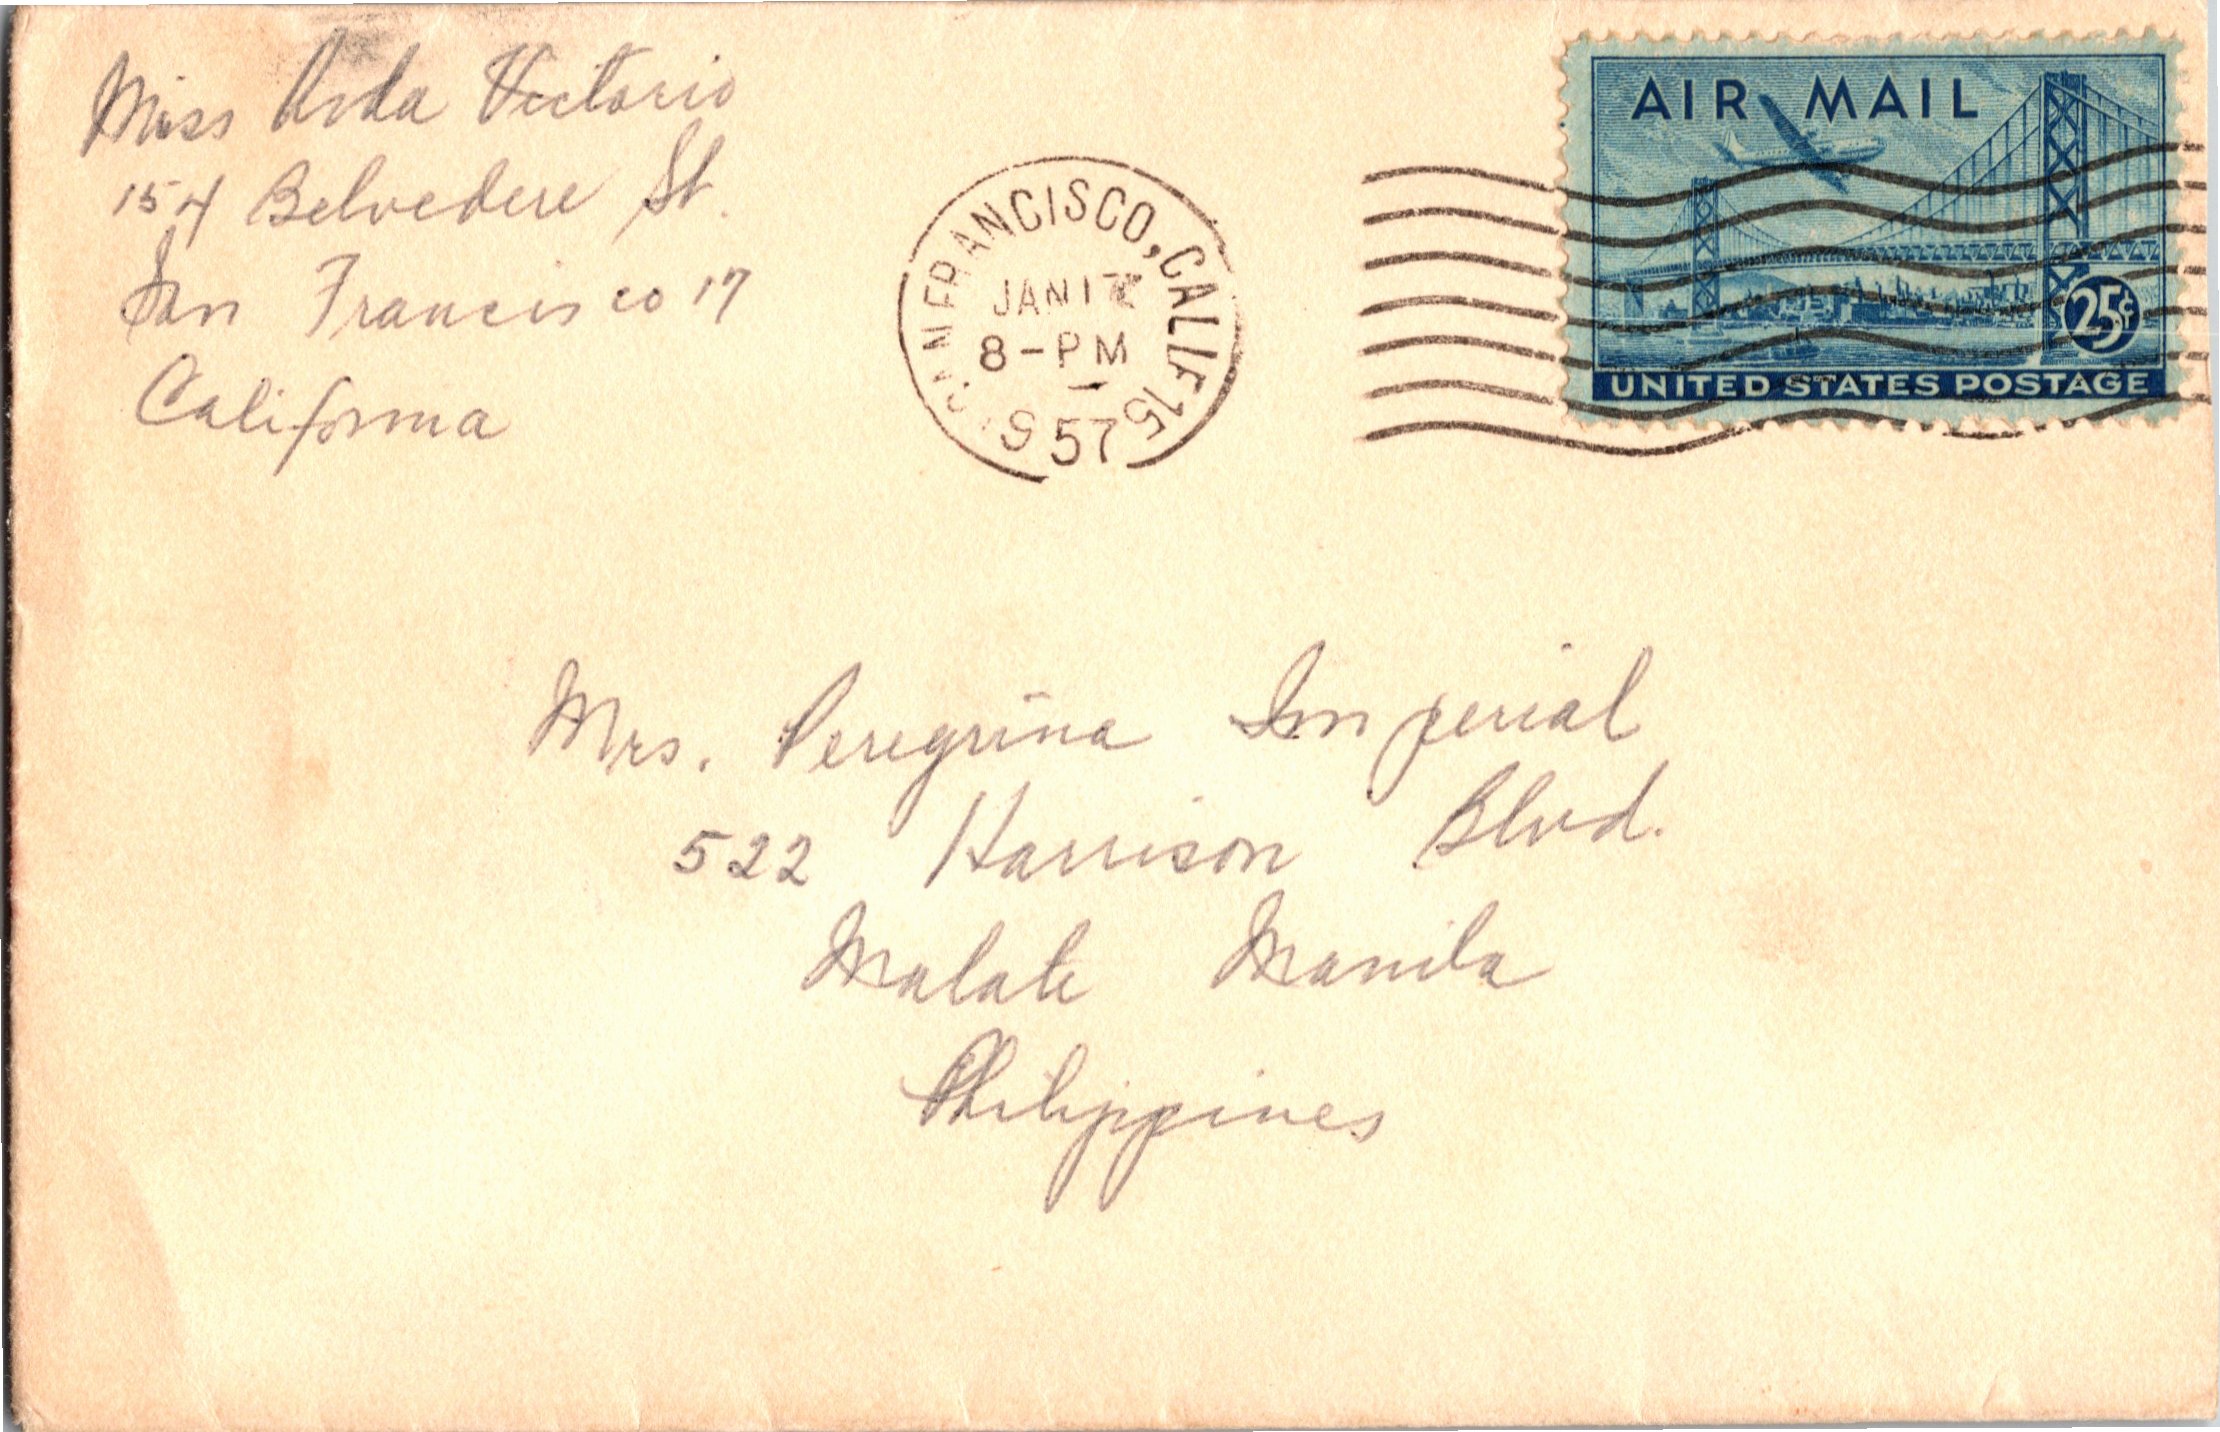 Miss Aida Victorio
154 Belvedere St.
San Francisco 17
California
SAN FRANCISCO, CALIF 15
JAN 17
8-PM
57
AIR MAIL
25¢
UNITED STATES POSTAGE
Mrs. Peregrina Imperial
522 Harrison Blvd.
Malate Manila
Philippines